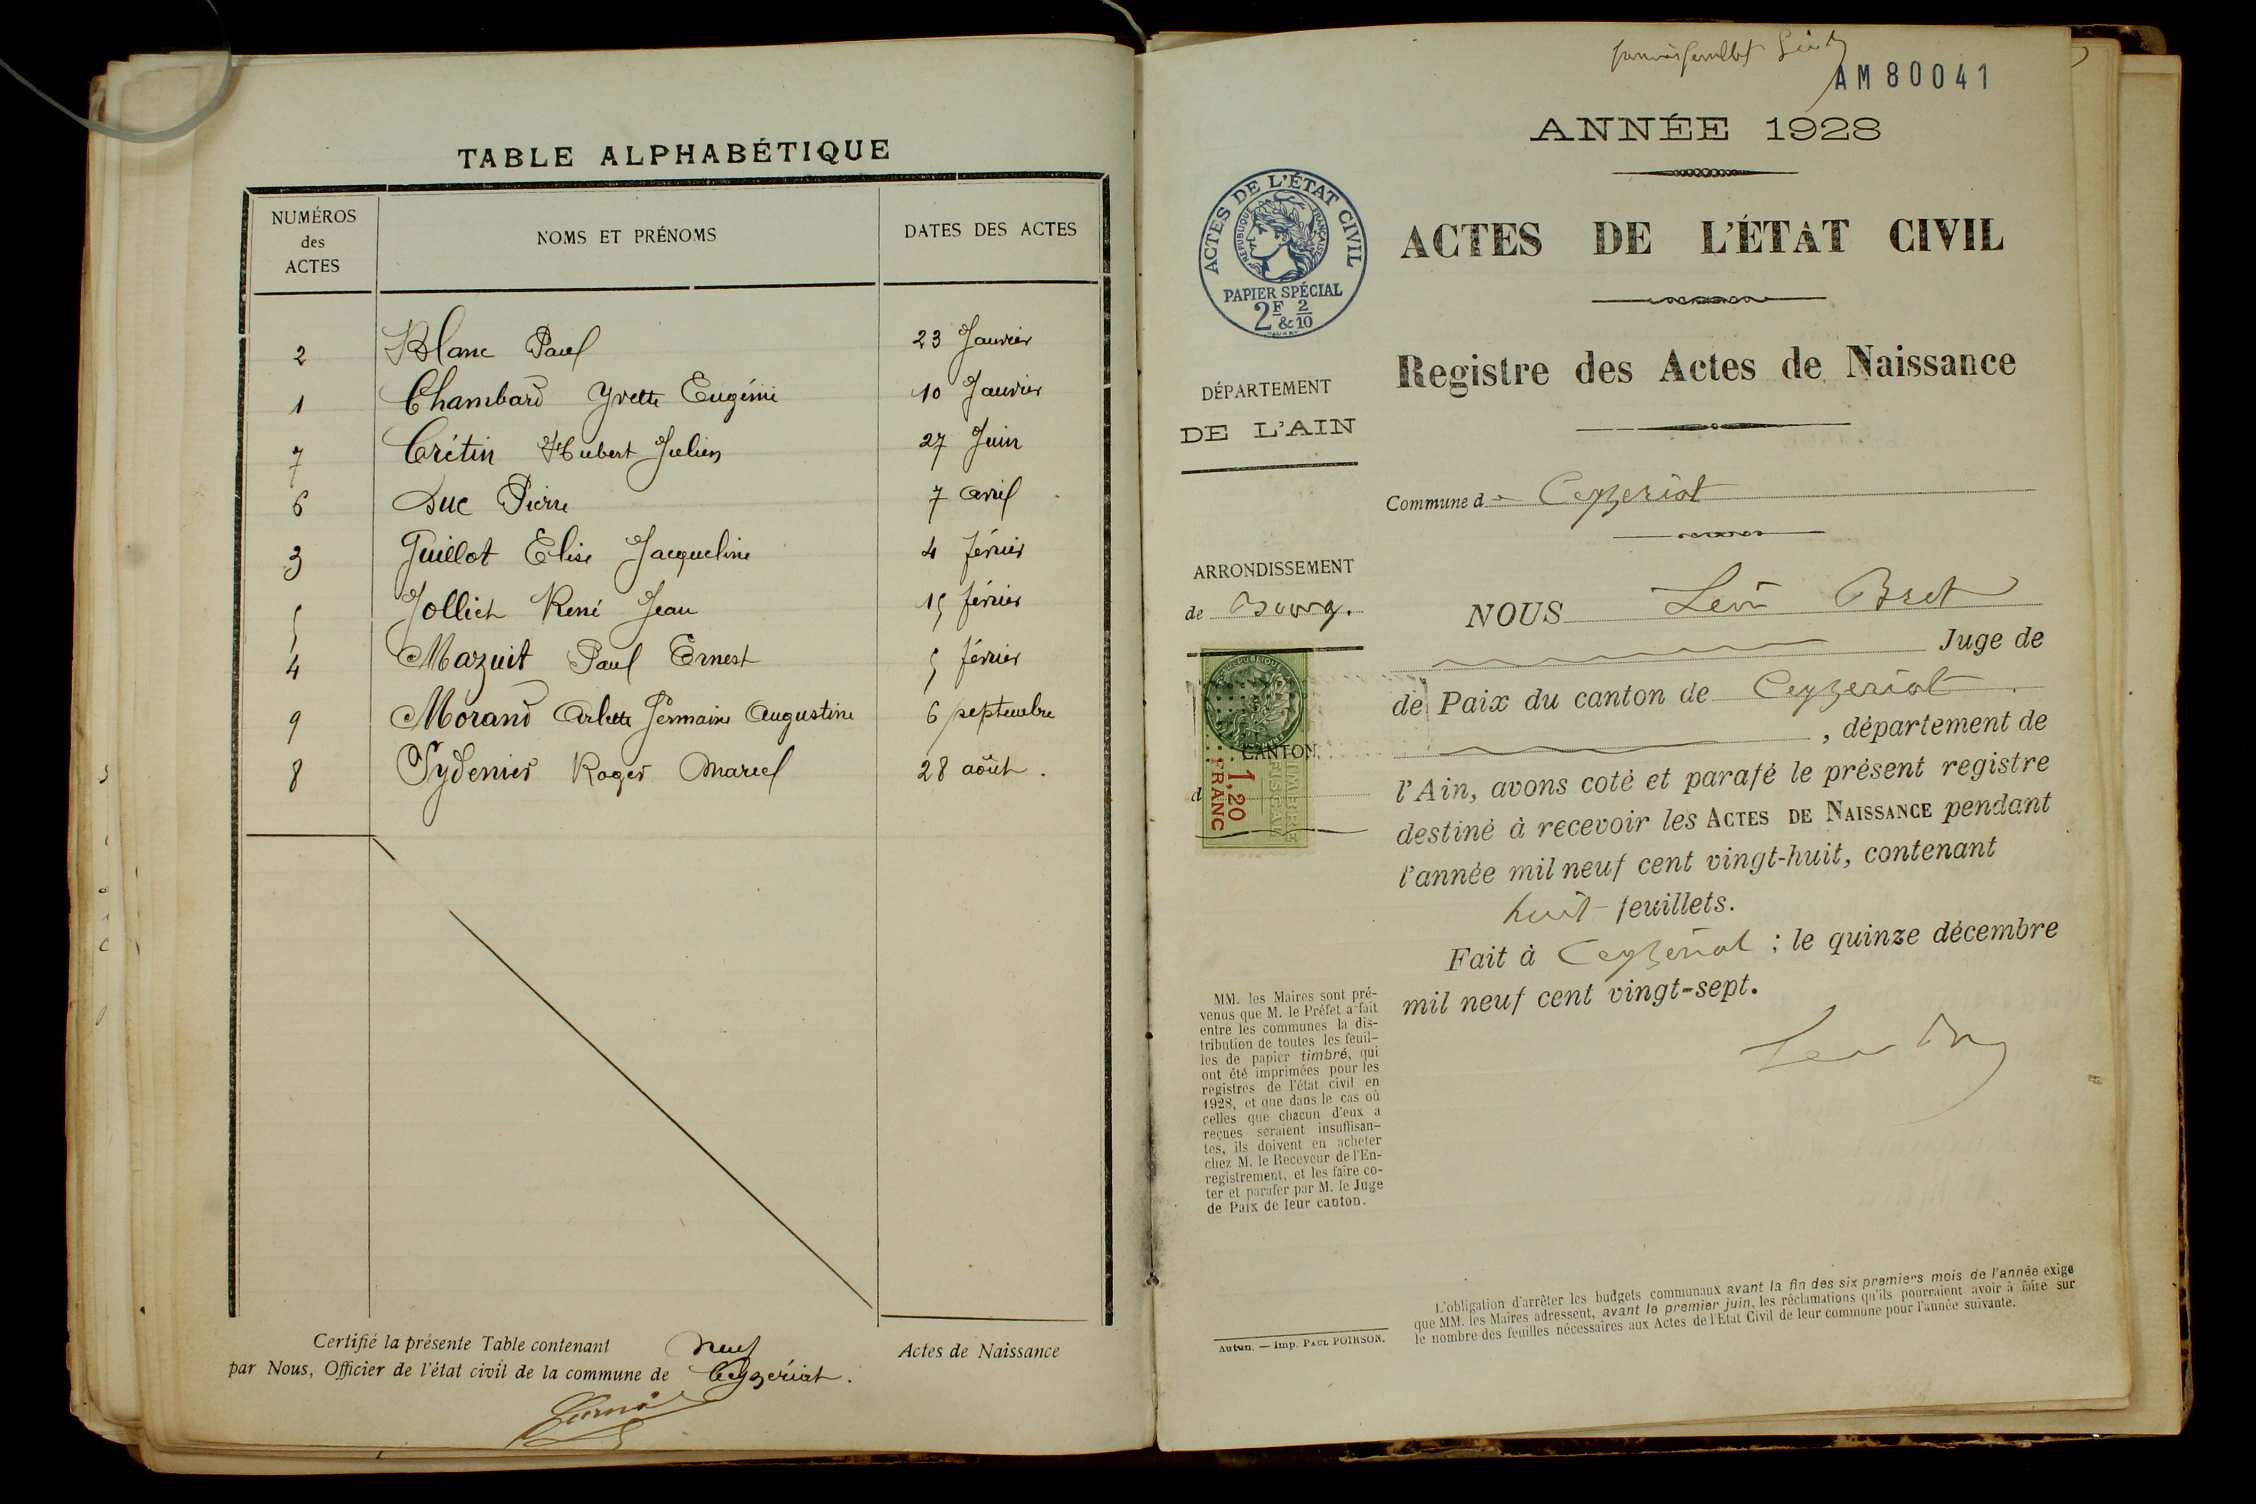 TABLE ALPHABÉTIQUE
NUMÉROS des ACTES
NOMS ET PRÉNOMS
DATES DES ACTES
2 Blanc Paul 23 Janvier
1 Chambard Yvette Eugénie 10 Janvier
7 Crétin Hubert Julien 27 Juin
6 Duc Pierre 7 avril
3 Guillot Elise Jacqueline 4 février
5 Jolliet René Jean 15 février
4 Mazuit Paul Ernest 5 février
9 Morand Arlette Germaine Augustine 6 septembre
8 Tydenier Roger Marcel 28 août.
Certifié la présente Table contenant neuf Actes de Naissance
par Nous, Officier de l'état civil de la commune de Ceyzériat.
premier feuillet
AM 80041
ANNÉE 1928
ACTES DE L'ÉTAT CIVIL
RÉPUBLIQUE FRANÇAISE
PAPIER SPÉCIAL
2F & 2/10
ACTES DE L'ÉTAT CIVIL
Registre des Actes de Naissance
DÉPARTEMENT
DE L'AIN
Commune de Ceyzeriat
ARRONDISSEMENT
de Bourg.
CANTON
d
1,20
FRANC
TIMBRE
FISCAL
NOUS Léon Bret
Juge de
de Paix du canton de Ceyzeriat
, département de
l'Ain, avons coté et parafé le présent registre
destiné à recevoir les ACTES DE NAISSANCE pendant
l'année mil neuf cent vingt-huit, contenant
huit feuillets.
Fait à Ceyzeriat ; le quinze décembre
mil neuf cent vingt-sept.
MM. les Maires sont pré-
venus que M. le Préfet a fait
entre les communes la dis-
tribution de toutes les feuil-
les de papier timbré, qui
ont été imprimées pour les
registres de l'état civil en
1928, et que dans le cas où
celles que chacun d'eux a
reçues seraient insuffisan-
tes, ils doivent en acheter
chez M. le Receveur de l'En-
registrement, et les faire co-
ter et parafer par M. le Juge
de Paix de leur canton.
Autun. — Imp. PAUL POIRSON.
L'obligation d'arrêter les budgets communaux avant la fin des six premiers mois de l'année exige
que MM. les Maires adressent, avant le premier juin, les réclamations qu'ils pourraient avoir à faire sur
le nombre des feuilles nécessaires aux Actes de l'Etat Civil de leur commune pour l'année suivante.